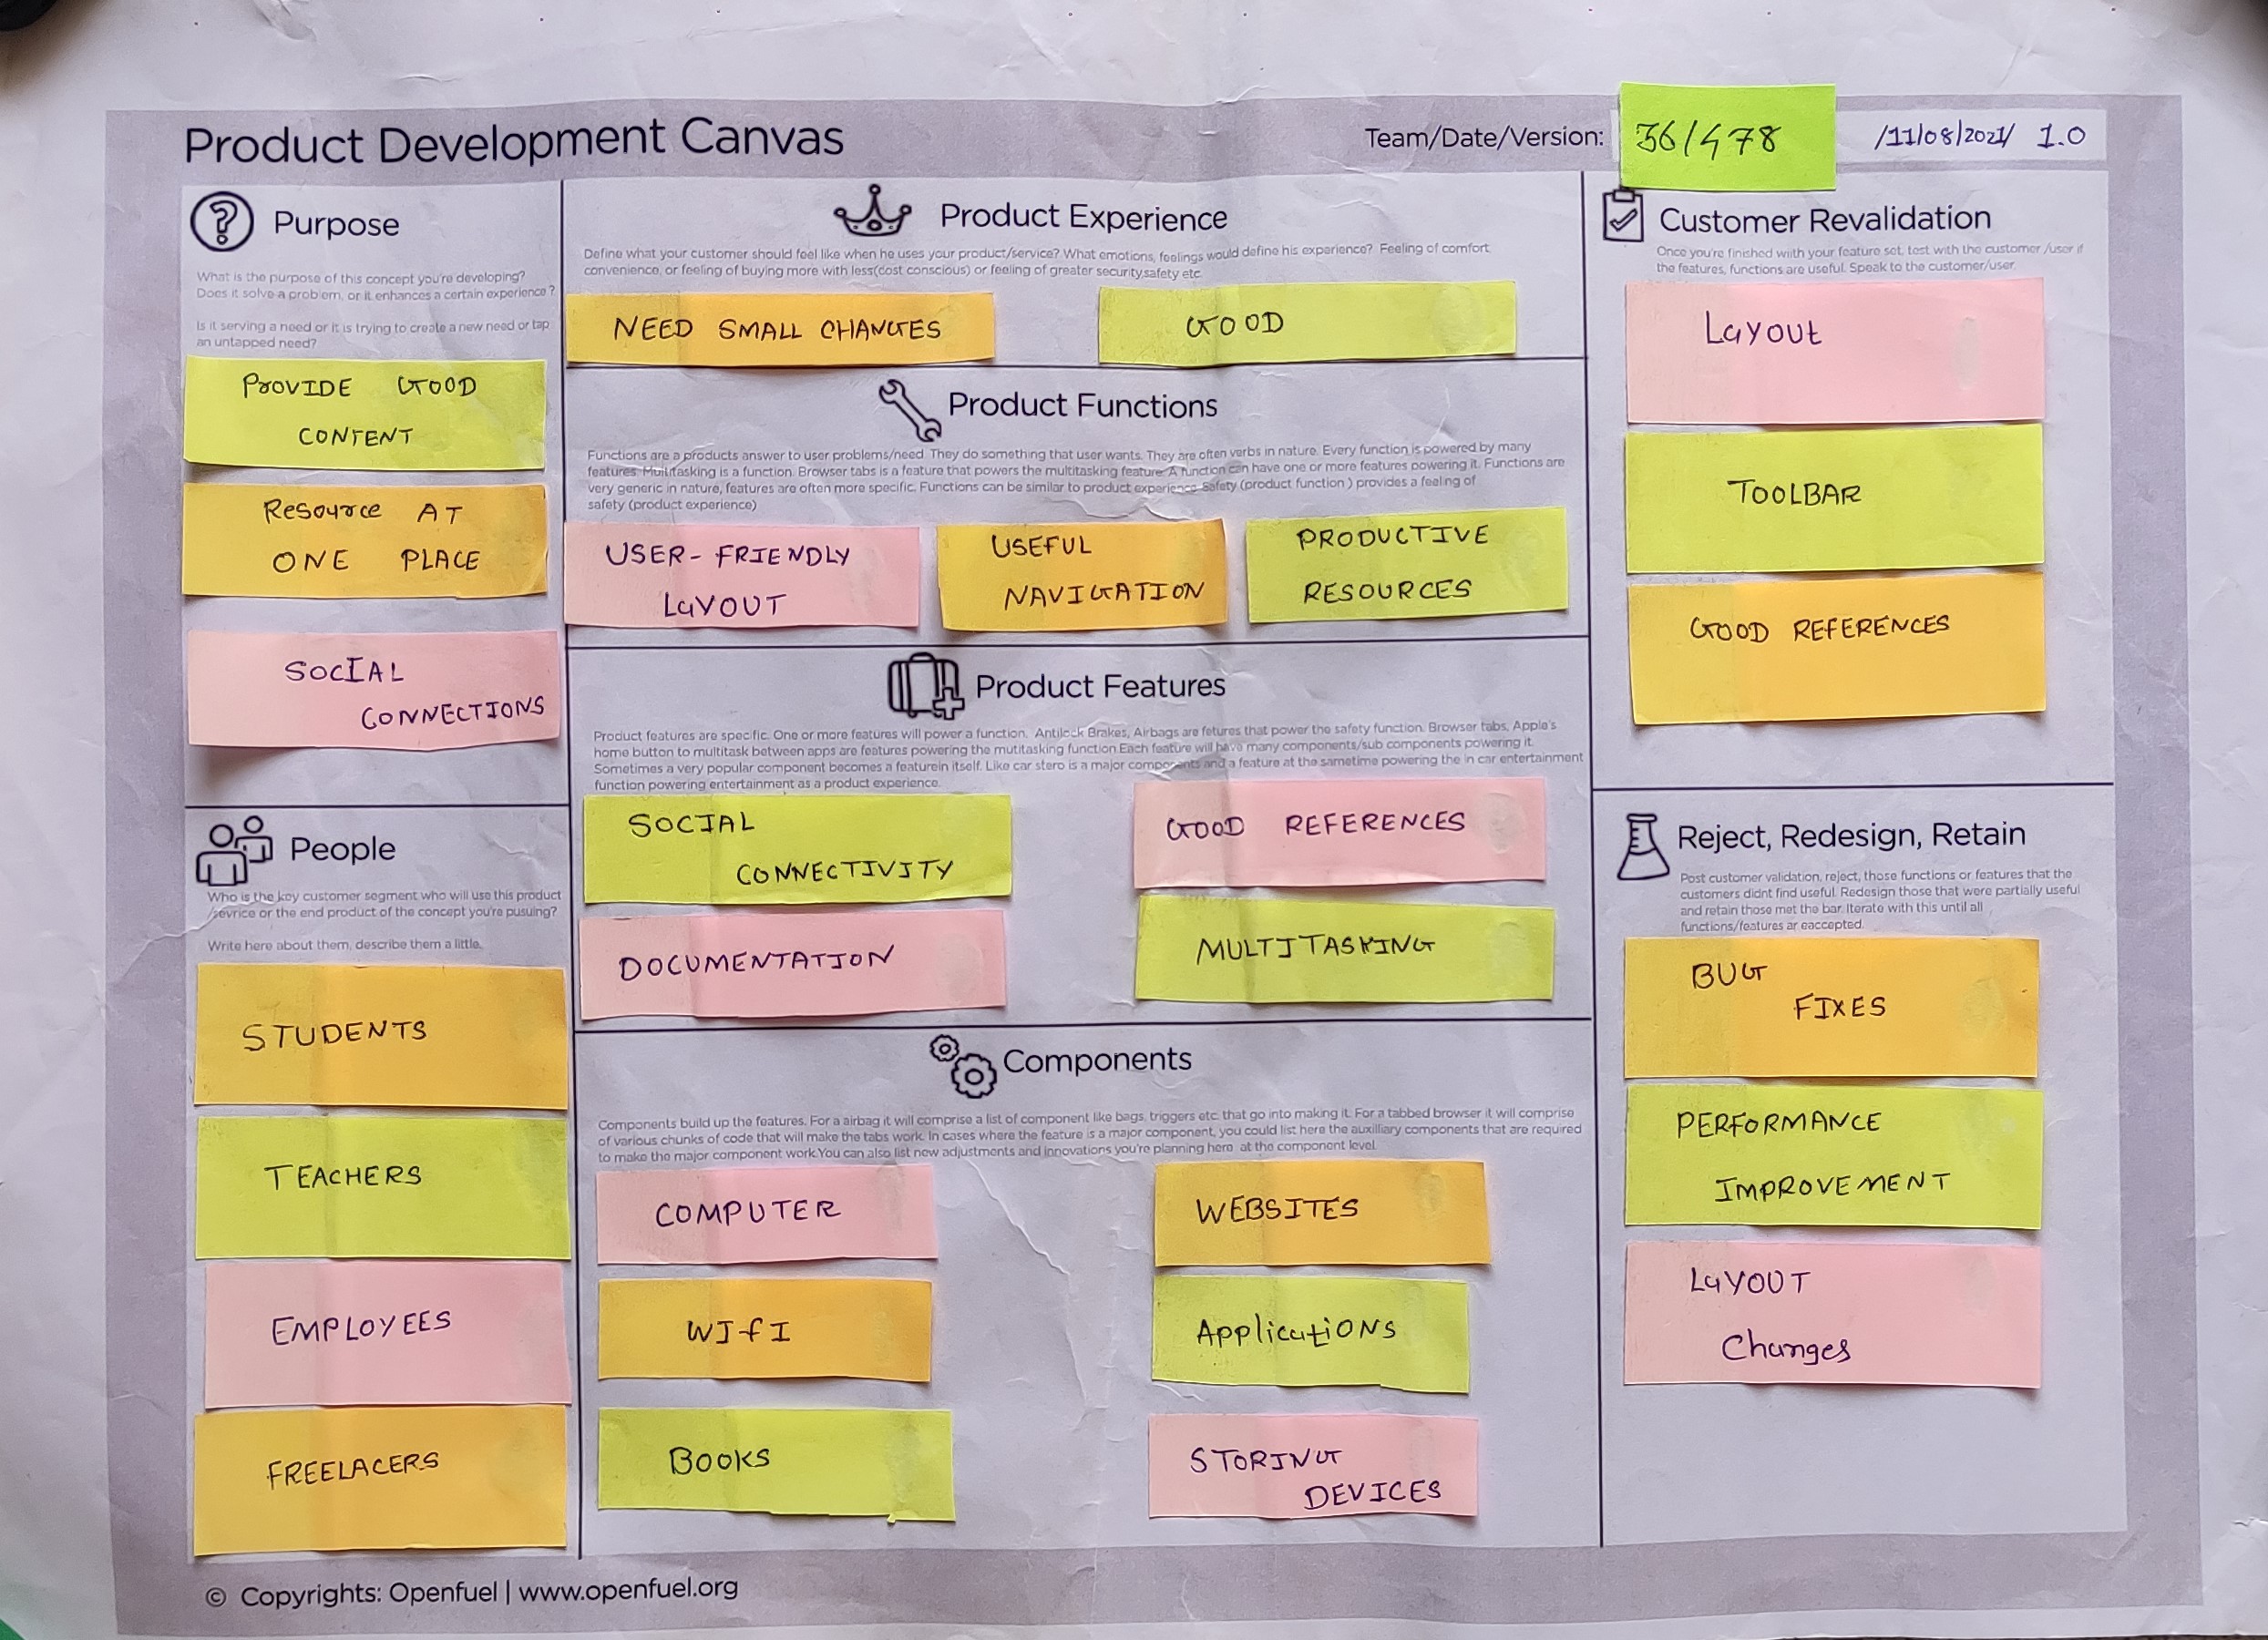 Product Development Canvas
Team/Date/Version:
36/478
/11/08/2021/ 1.0
Purpose
What is the purpose of this concept you're developing?
Does it solve a problem, or it enhances a certain experience?
Is it serving a need or it is trying to create a new need or tap
an untapped need?
PROVIDE GOOD
CONTENT
Resource AT
ONE PLACE
SOCIAL
CONNECTIONS
People
Who is the key customer segment who will use this product
/sevrice or the end product of the concept you're pusuing?
Write here about them, describe them a little.
STUDENTS
TEACHERS
EMPLOYEES
FREELACERS
Product Experience
Define what your customer should feel like when he uses your product/service? What emotions, feelings would define his experience? Feeling of comfort,
convenience, or feeling of buying more with less(cost conscious) or feeling of greater security,safety etc.
NEED SMALL CHANGES
GOOD
Product Functions
Functions are a products answer to user problems/need. They do something that user wants. They are often verbs in nature. Every function is powered by many
features. Multitasking is a function. Browser tabs is a feature that powers the multitasking feature. A function can have one or more features powering it. Functions are
very generic in nature, features are often more specific. Functions can be similar to product experience. Safety (product function ) provides a feeling of
safety (product experience)
USER-FRIENDLY
LAYOUT
USEFUL
NAVIGATION
PRODUCTIVE
RESOURCES
Product Features
Product features are specific. One or more features will power a function. Antilock Brakes, Airbags are fetures that power the safety function. Browser tabs, Apple's
home button to multitask between apps are features powering the mutitasking function.Each feature will have many components/sub components powering it.
Sometimes a very popular component becomes a featurein itself. Like car stero is a major components and a feature at the sametime powering the in car entertainment
function powering entertainment as a product experience.
SOCIAL
CONNECTIVITY
GOOD REFERENCES
DOCUMENTATION
MULTITASKING
Components
Components build up the features. For a airbag it will comprise a list of component like bags, triggers etc. that go into making it. For a tabbed browser it will comprise
of various chunks of code that will make the tabs work. In cases where the feature is a major component, you could list here the auxilliary components that are required
to make the major component work.You can also list new adjustments and innovations you're planning here at the component level.
COMPUTER
WEBSITES
WIfI
Applications
BOOKS
STORING
DEVICES
Customer Revalidation
Once you're finished with your feature set, test with the customer /user if
the features, functions are useful. Speak to the customer/user.
Layout
TOOLBAR
GOOD REFERENCES
Reject, Redesign, Retain
Post customer validation, reject, those functions or features that the
customers didnt find useful. Redesign those that were partially useful
and retain those met the bar. Iterate with this until all
functions/features ar eaccepted.
BUG
FIXES
PERFORMANCE
IMPROVEMENT
LAYOUT
Changes
© Copyrights: Openfuel | www.openfuel.org